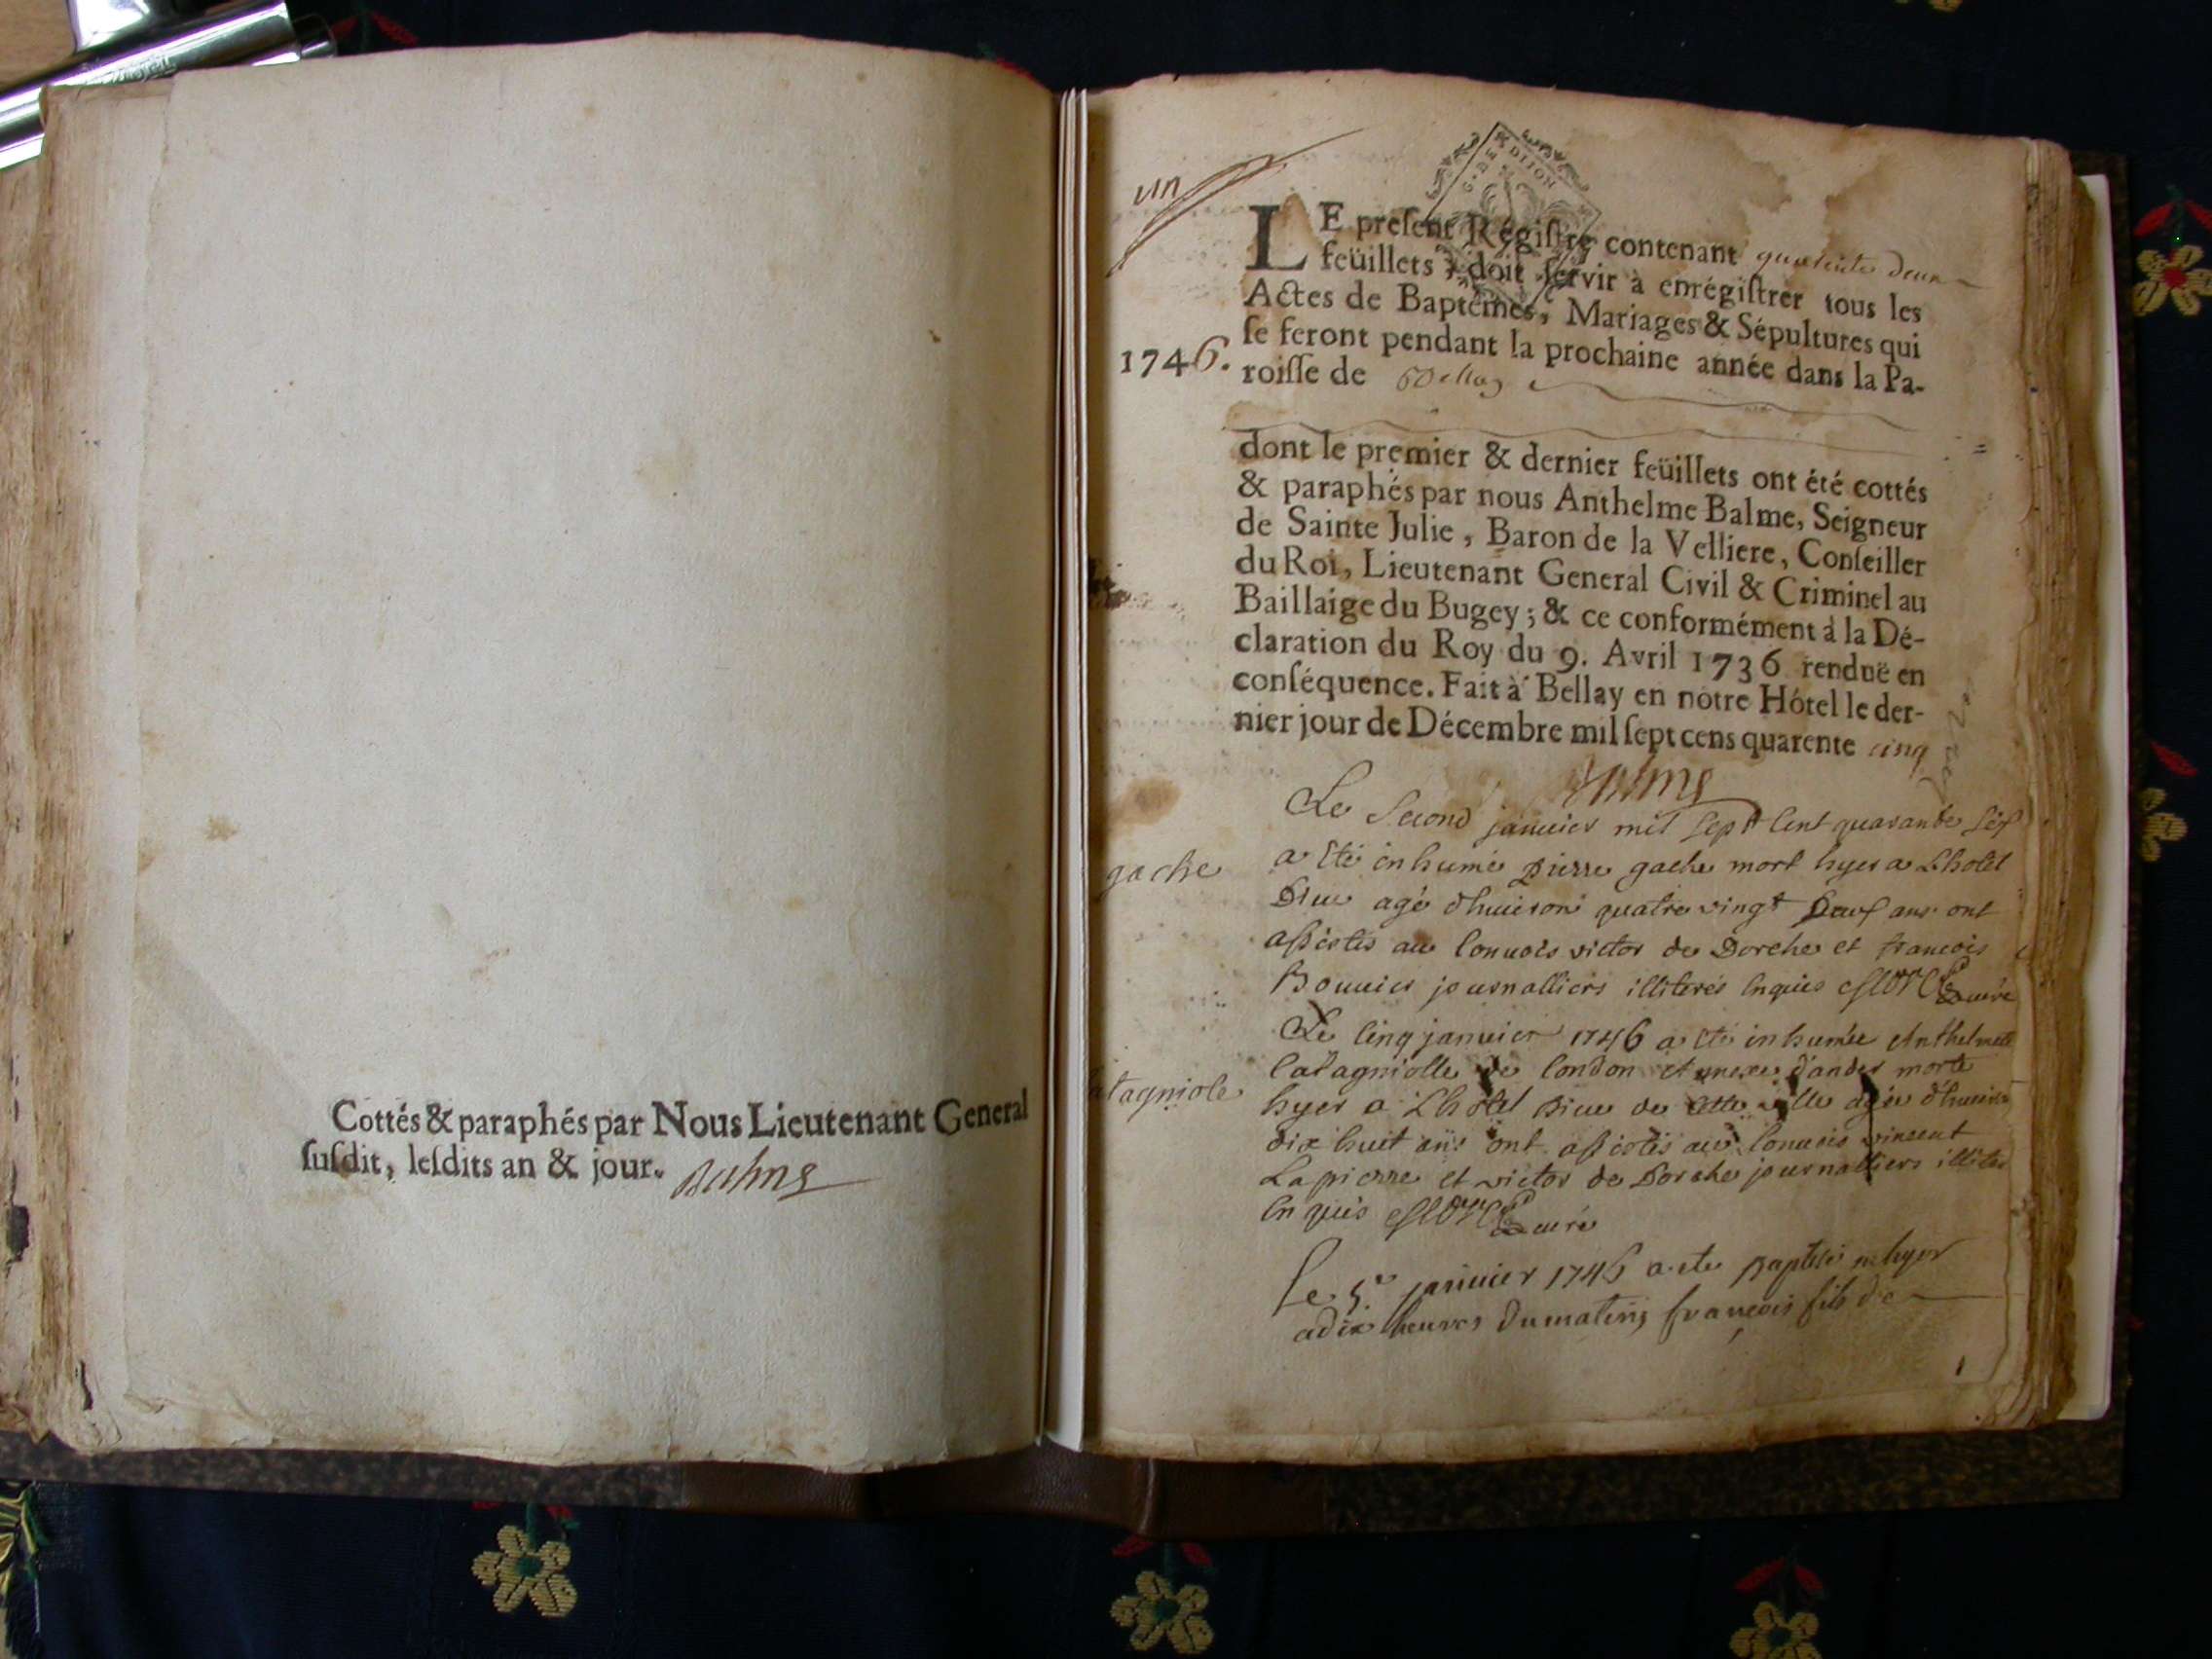 Cottés & paraphés par Nous Lieutenant General
ſuſdit, leſdits an & jour. Balme
un
G. DE DIJON
LE preſent Régiſtre contenant quarente deux
feüillets, doit ſervir à enrégiſtrer tous les
Actes de Baptêmes, Mariages & Sépultures qui
ſe feront pendant la prochaine année dans la Pa-
1746.
roiſſe de Bellay
dont le premier & dernier feüillets ont été cottés
& paraphés par nous Anthelme Balme, Seigneur
de Sainte Julie, Baron de la Velliere, Conſeiller
du Roi, Lieutenant General Civil & Criminel au
Baillaige du Bugey; & ce conformément à la Dé-
claration du Roy du 9. Avril 1736 renduë en
conſéquence. Fait à Bellay en nôtre Hôtel le der-
nier jour de Décembre mil ſept cens quarente cinq
Balme
Le Second janvier mil sept cent quarante six
gache
a été inhumé pierre gache mort hyer a Lhotel
Dieu agé d'huiron quatre vingt ans ont
assistés au convois victor de Dorche et francois
Bouvier journalliers illiterés enquis curé
Le cinq janvier 1746 a été inhumée Anthelmette
catagniolle de condon et morte
atagniole
hyer a Lhotel Dieu de cette ville agée d'huiron
dix huit ans ont assistés au convois vincent
Lapierre et victor de Dorche journalliers illiter
enquis curé
Le 5e janvier 1746 a ete Baptisé né hyer
a dix heures du matin, françois fils de